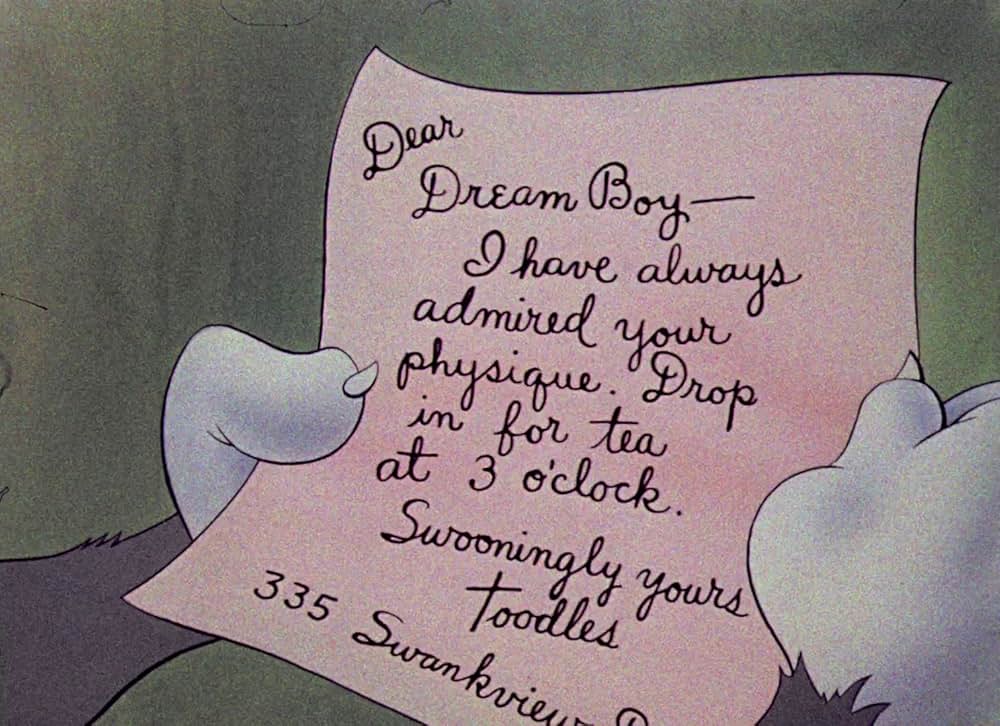 Dear
Dream Boy—
I have always
admired your
physique. Drop
in for tea
at 3 o'clock.
Swooningly yours
Toodles
335 Swankview